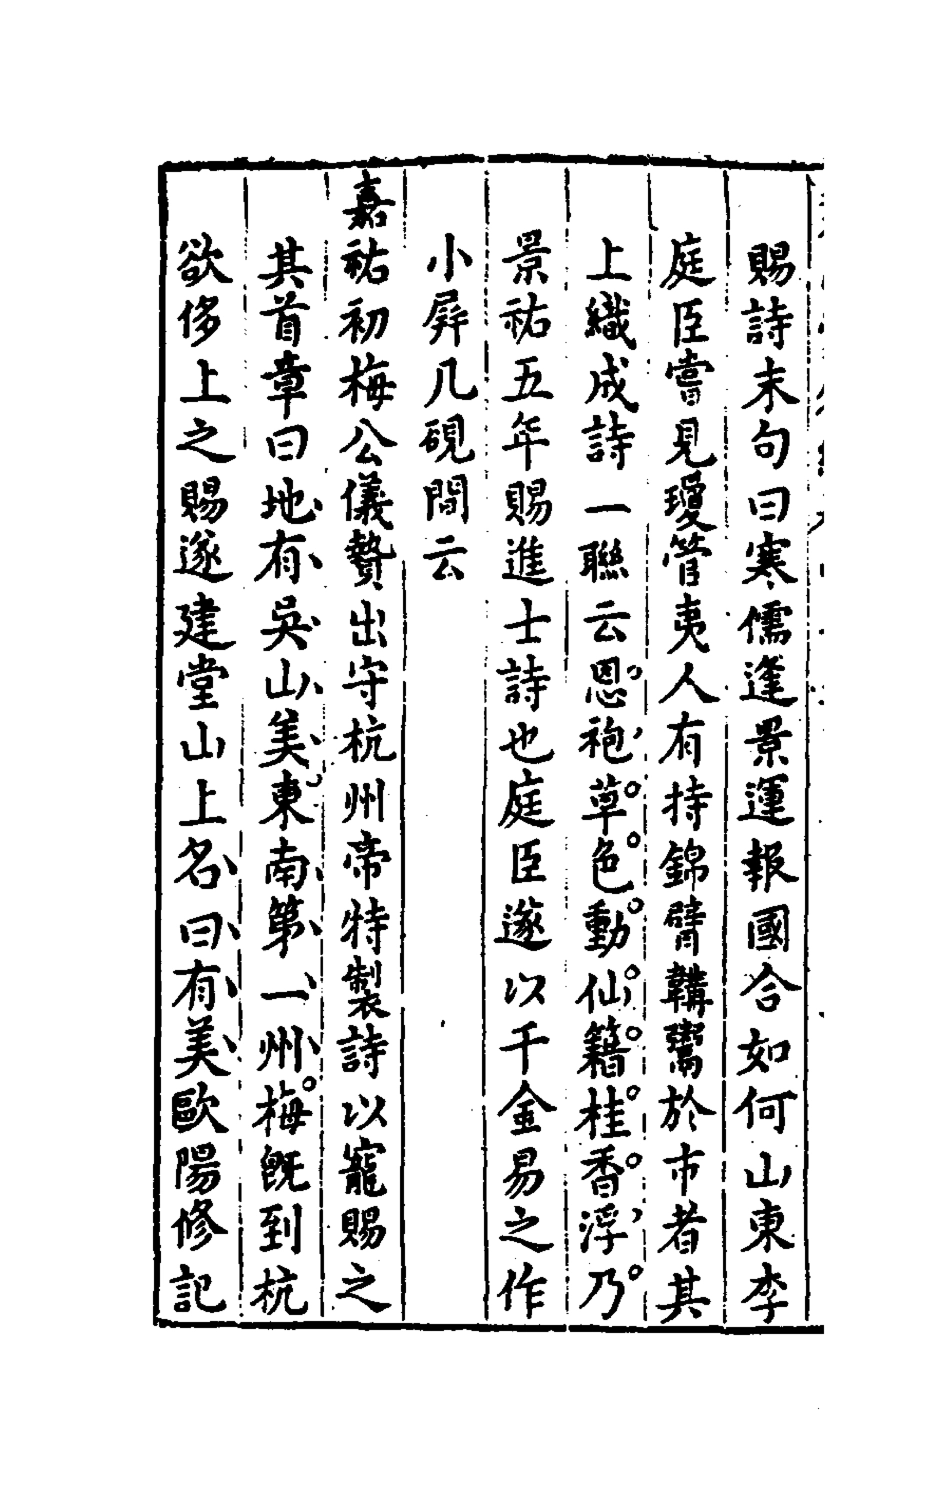 賜詩末句曰寒儒逢景運報國合如何山東李
庭臣嘗見瓊管夷人有持錦臂韝鬻於市者其
上織成詩一聯云恩袍草色動仙籍桂香浮乃
景祐五年賜進士詩也庭臣遂以千金易之作
小屏几硯間云
嘉祐初梅公儀贄出守杭州帝特製詩以寵賜之
其首章曰地有吳山美東南第一州梅旣到杭
欲侈上之賜遂建堂山上名曰有美歐陽修記